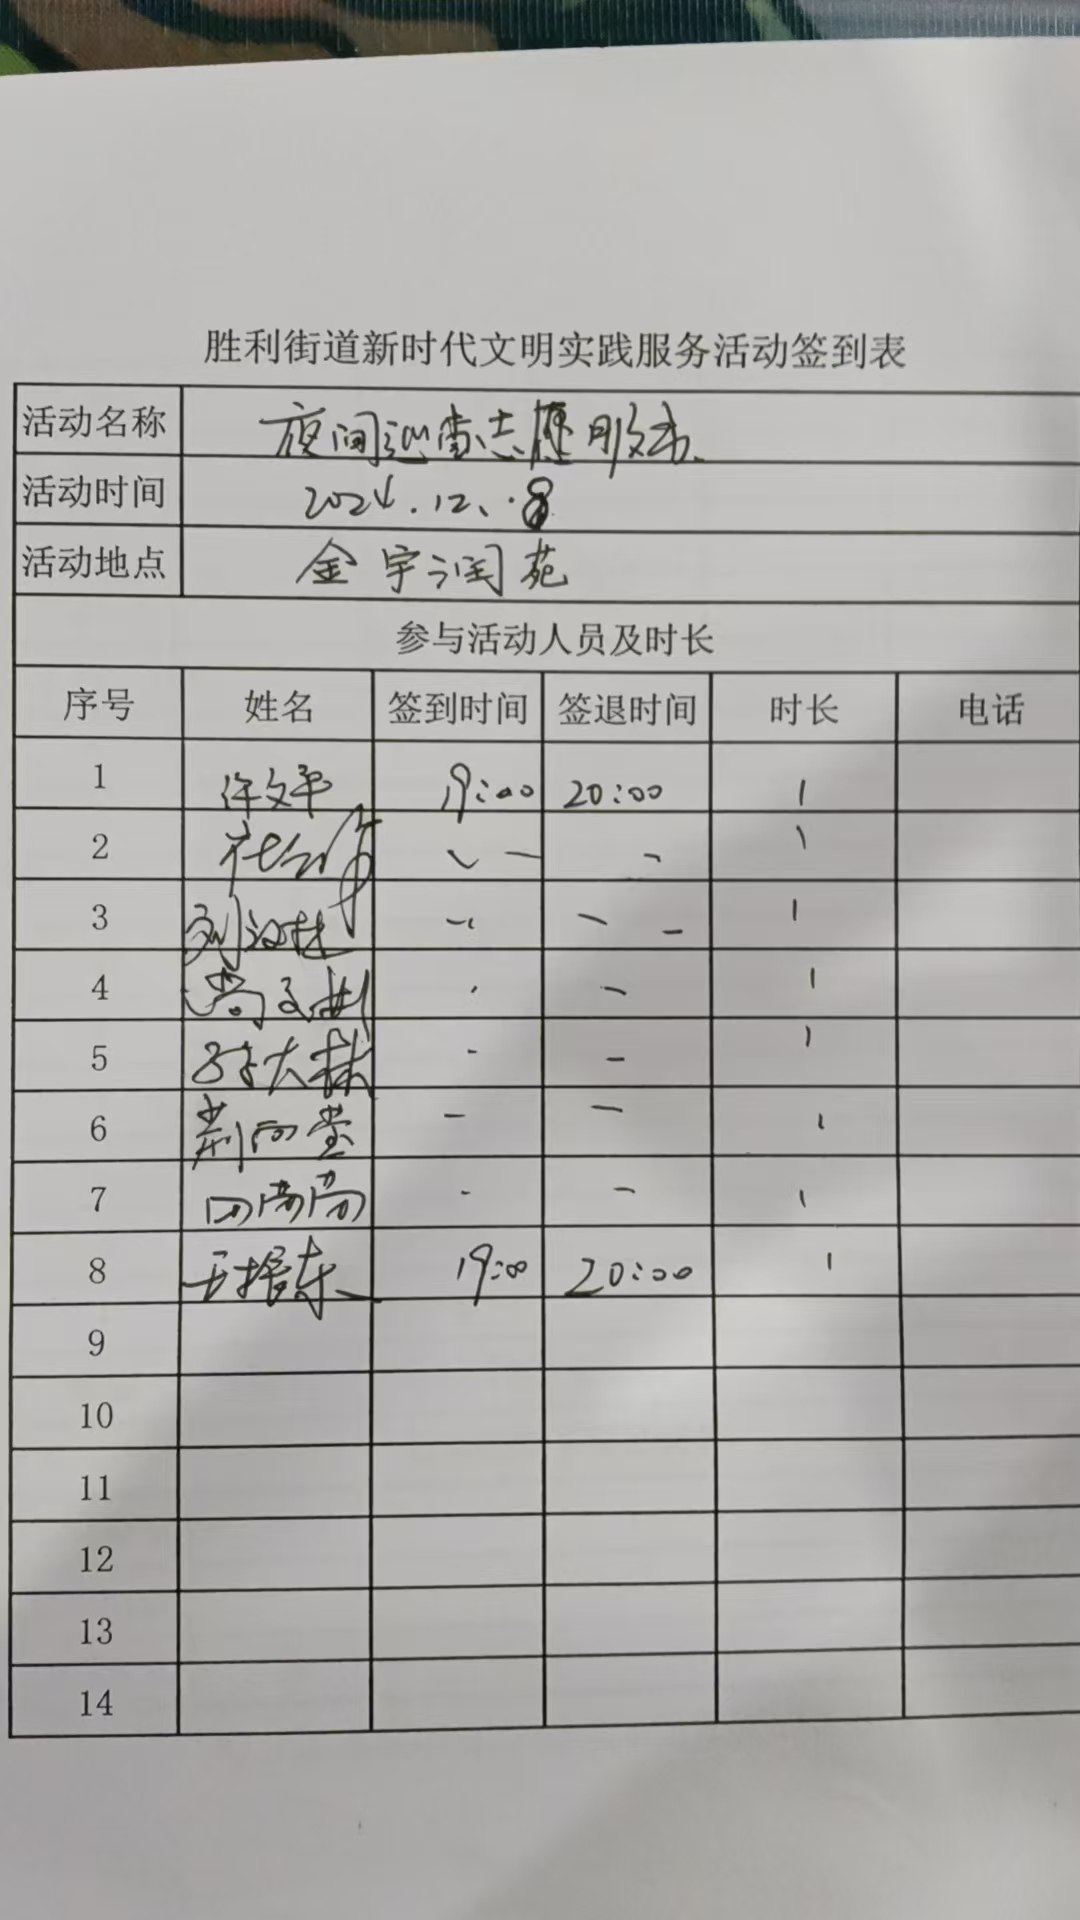 胜利街道新时代文明实践服务活动签到表
活动名称 夜间巡查志愿服务
活动时间 2024.12.8
活动地点 金宇润苑
参与活动人员及时长
序号 姓名 签到时间 签退时间 时长 电话
1 许文平 19:00 20:00 1
2 1
3 1
4 1
5 1
6 1
7 1
8 19:00 20:00 1
9
10
11
12
13
14